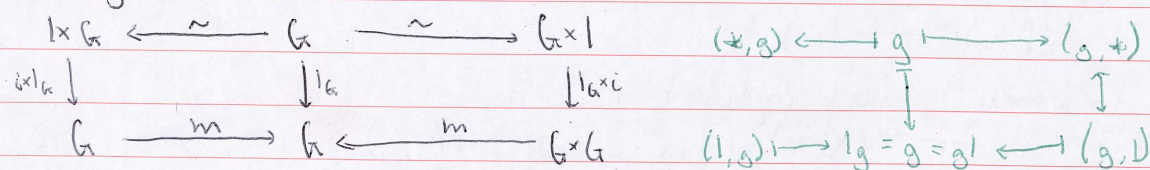 1×G ←~ G ~→ G×1 (*,g) ↤ g ↦ (g,*)
i×1_G ↓ ↓ 1_G ↓ 1_G×i
G m→ G ←m G×G (1,g) ↦ 1g = g = g1 ↤ (g,1)